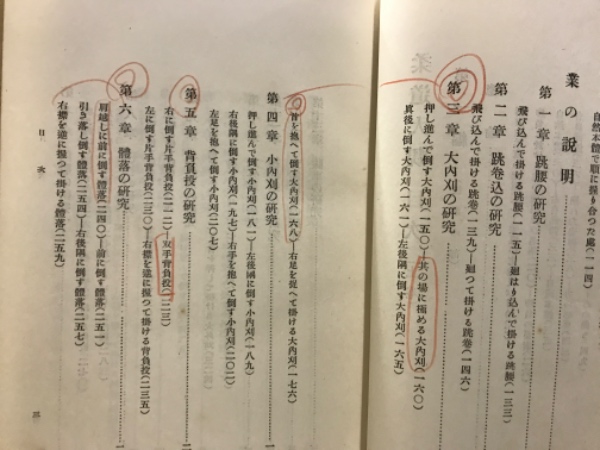 自然本體で順に握り合つた處(一一四)
業の說明
第一章 跳腰の硏究
飛び込んで掛ける跳腰(一一五)―廻はり込んで掛ける跳腰(一三三)
第二章 跳卷込の硏究
飛び込んで掛ける跳卷(一三九)―廻つて掛ける跳卷(一四六)
第三章 大內刈の硏究
押し進んで倒す大內刈(一五〇)―其の場に極める大內刈(一六〇)
眞後に倒す大內刈(一六一)―左後隅に倒す大內刈(一六五)
首を抱へて倒す大內刈(一六八)―右足を捉へて掛ける大內刈(一七六)
第四章 小內刈の硏究
押し進んで倒す小內刈(一八一)―左後隅に倒す小內刈(一八九)
右後隅に倒す小內刈(一九七)―右手を抱へて倒す小內刈(二〇二)
左足を抱へて倒す小內刈(二〇七)
第五章 背負投の硏究
右に倒す片手背負投(二一二)―双手背負投(二二三)
左に倒す片手背負投(二三〇)―右襟を逆に握つて掛ける背負投(二三五)
第六章 體落の硏究
肩越しに前に倒す體落(二四〇)―前に倒す體落(二五一)
引き落し倒す體落(二五四)―右後隅に倒す體落(二五七)
右襟を逆に握つて掛ける體落(二五九)
目次
三